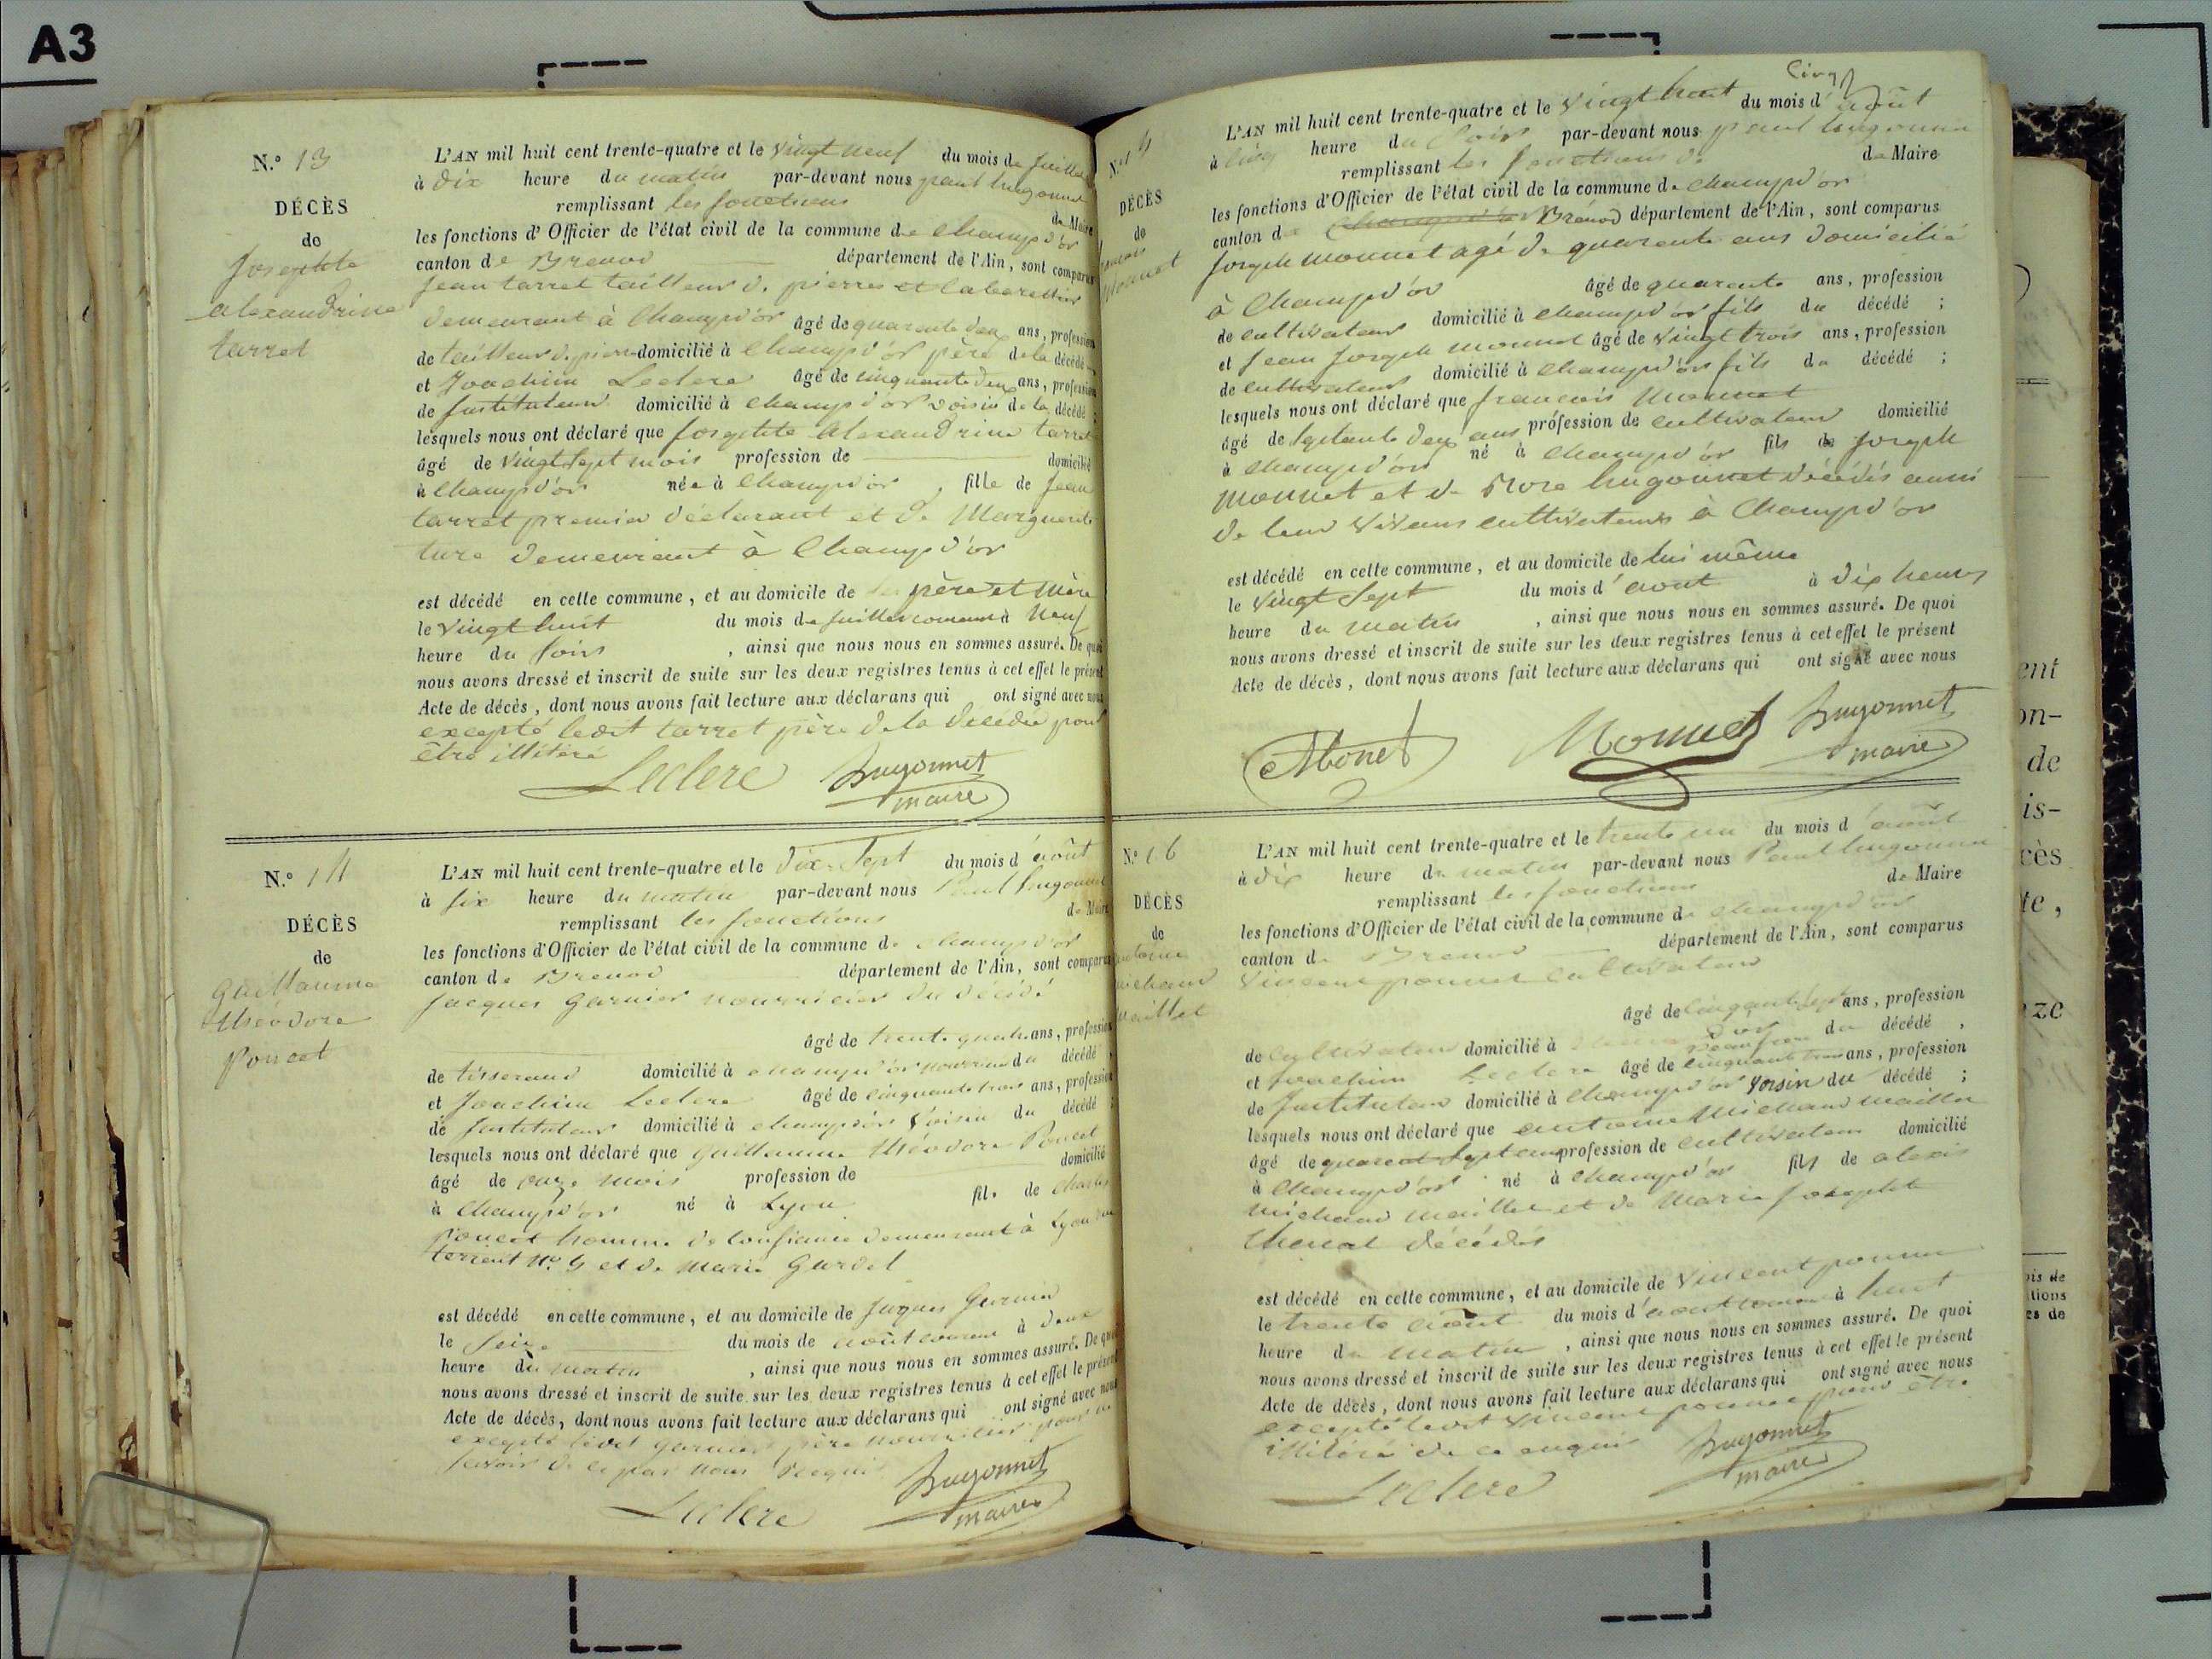 A3
N.º 13
DÉCÈS
de
Josephte
alexandrine
tarret
L'AN mil huit cent trente-quatre et le vingt neuf du mois de juillet
à dix heure du matin par-devant nous paul hugonnet
remplissant les fonctions de Maire
les fonctions d'Officier de l'état civil de la commune de Champd'or
canton de Brenod département de l'Ain, sont comparus
Jean tarret tailleur de pierres et
demeurant à Champd'or âgé de quarante deux ans, profession
de tailleur de pierre domicilié à Champd'or père de la décédé
et Joachim Leclere âgé de cinquante deux ans, profession
de Instituteur domicilié à Champd'or voisin de la décédé ;
lesquels nous ont déclaré que Josephte Alexandrine tarret
âgé de vingt sept mois profession de domicilié
à Champd'or née à Champd'or , fille de Jean
tarret premier déclarant et de Marguerite
ture demeurant à Champd'or
est décédé en cette commune, et au domicile de père et mère
le vingt huit du mois de juillet courant à Neuf
heure du soir , ainsi que nous nous en sommes assuré. De quoi
nous avons dressé et inscrit de suite sur les deux registres tenus à cet effet le présent
Acte de décès, dont nous avons fait lecture aux déclarans qui ont signé avec nous
excepté ledit tarret père de la décédée pour
être illitéré
Leclere hugonnet
maire
N.º 14
DÉCÈS
de
guillaume
théodore
Poncet
L'AN mil huit cent trente-quatre et le dix-sept du mois d'août
à six heure du matin par-devant nous Paul hugonnet
remplissant les fonctions de Maire
les fonctions d'Officier de l'état civil de la commune de champd'or
canton de Brenod département de l'Ain, sont comparus
Jacques garnier nourricier du décédé
âgé de trente quatre ans, profession
de tisserand domicilié à champd'or nourricier du décédé ,
et Joachim Leclere âgé de cinquante trois ans, profession
de Instituteur domicilié à champd'or voisin du décédé ;
lesquels nous ont déclaré que guillaume théodore Poncet
âgé de onze mois profession de domicilié
à Champd'or né à Lyon fils de Charles
Poncet homme de confiance demeurant à Lyon rue
torrent nº 5 et de Marie Gurdel
est décédé en cette commune, et au domicile de Jaques Garnier
le seize du mois de août courant à deux
heure du matin , ainsi que nous nous en sommes assuré. De quoi
nous avons dressé et inscrit de suite sur les deux registres tenus à cet effet le présent
Acte de décès, dont nous avons fait lecture aux déclarans qui ont signé avec nous
excepté ledit garnier père nourricier pour ne
savoir de ce par nous requis
Leclere hugonnet
maire
DÉCÈS
de
Monnet
Cinq
L'AN mil huit cent trente-quatre et le vingt huit du mois d'août
à cinq heure du soir par-devant nous paul hugonnet
remplissant les fonctions de de Maire
les fonctions d'Officier de l'état civil de la commune de champd'or
canton de Brénod département de l'Ain, sont comparus
Joseph Monnet agé de quarante ans domicilié
à Champd'or âgé de quarante ans, profession
de cultivateur domicilié à champd'or fils du décédé ;
et Jean Joseph monnet âgé de vingt trois ans, profession
de cultivateur domicilié à champd'or fils du décédé ;
lesquels nous ont déclaré que françois Monnet
âgé de septante deux ans profession de cultivateur domicilié
à champd'or né à champd'or fils de Joseph
Monnet et de Flore hugonnet décédés aussi
de leur vivans cultivateurs à Champd'or
est décédé en cette commune, et au domicile de lui même
le vingt sept du mois d'aout à dix heures
heure du matin , ainsi que nous nous en sommes assuré. De quoi
nous avons dressé et inscrit de suite sur les deux registres tenus à cet effet le présent
Acte de décès, dont nous avons fait lecture aux déclarans qui ont signé avec nous
Monet Monnet hugonnet
maire
N.º 16
DÉCÈS
de
antoine
michaud
maillet
L'AN mil huit cent trente-quatre et le trente un du mois d'août
à dix heure du matin par-devant nous Paul hugonnet
remplissant les fonctions de Maire
les fonctions d'Officier de l'état civil de la commune de champd'or
canton de Brenod département de l'Ain, sont comparus
Vincent ponnet cultivateur
âgé de cinquante sept ans, profession
de cultivateur domicilié à champd'or beaufrere du décédé ,
et Joachim Leclere âgé de cinquante trois ans, profession
de Instituteur domicilié à Champd'or voisin du décédé ;
lesquels nous ont déclaré que antoine Michaud maillet
âgé de quarent sept ans profession de cultivateur domicilié
à Champd'or né à champd'or fils de alexis
michaud maillet et de Marie Josephte
décédés
est décédé en cette commune, et au domicile de Vincent ponnet
le trente août du mois d'aout courant à huit
heure du matin , ainsi que nous nous en sommes assuré. De quoi
nous avons dressé et inscrit de suite sur les deux registres tenus à cet effet le présent
Acte de décès, dont nous avons fait lecture aux déclarans qui ont signé avec nous
excepté ledit Vincent ponnet pour être
illitéré de ce enquis
Leclere hugonnet
maire